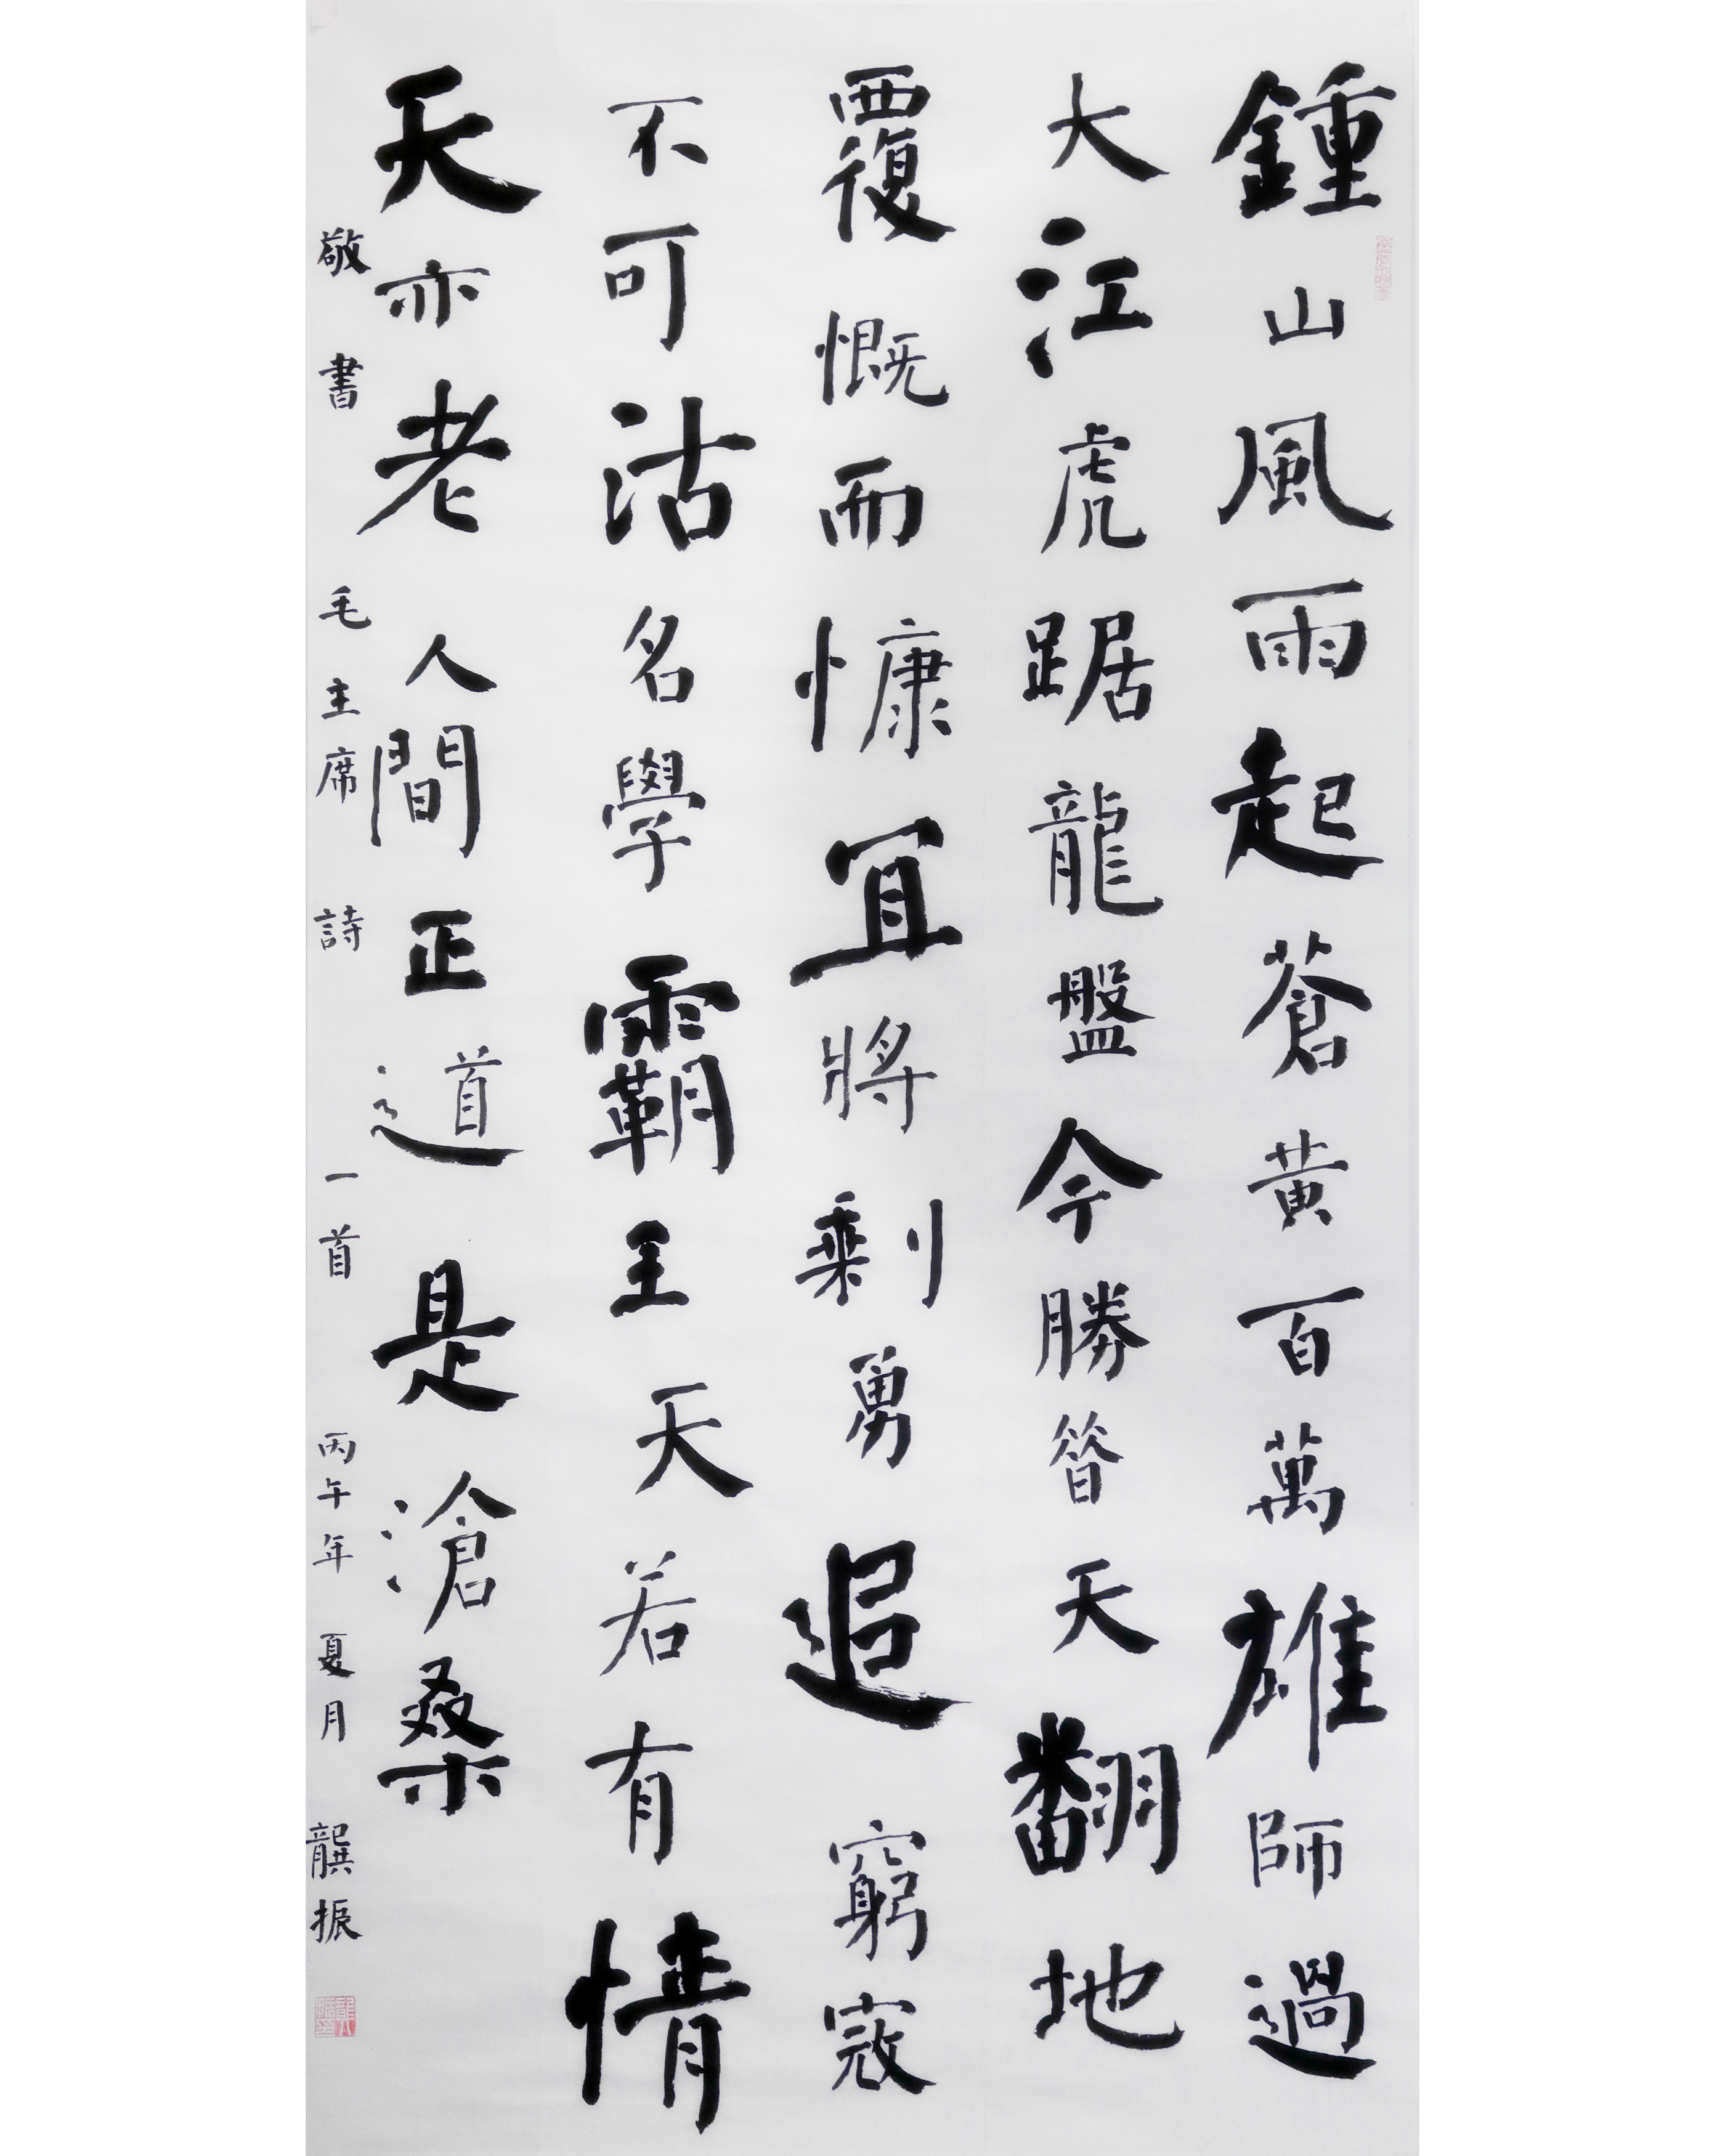 鍾山風雨起蒼黃百萬雄師過
大江虎踞龍盤今勝昝天翻地
覆慨而慷宜將剩勇追窮寇
不可沽名學霸王天若有情
天亦老人間正道是滄桑
敬書毛主席詩一首丙午年夏月龔振